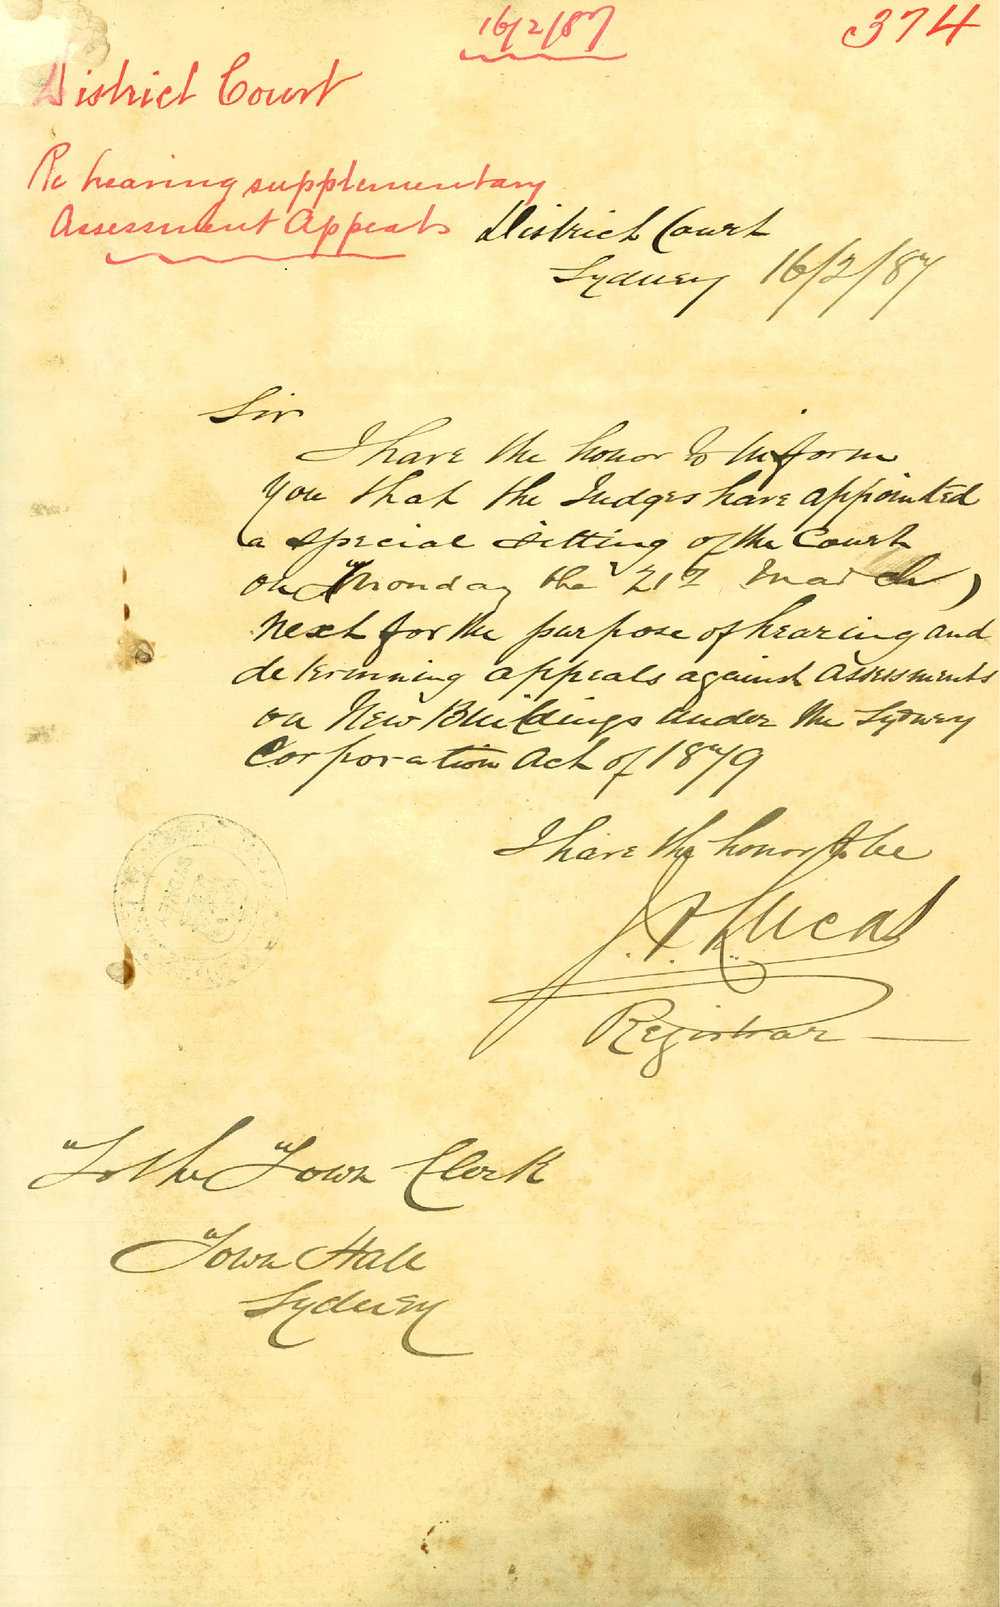 16/2/87
374
District Court
Re hearing supplementary
Assessment Appeals
District Court
Sydney 16/2/87
Sir
I have the honor to inform
you that the Judges have appointed
a special sitting of the Court
on Monday the 21st March
next for the purpose of hearing and
determining appeals against assessments
on New Buildings under the Sydney
Corporation Act of 1879
I have the honor to be
Lucas
Registrar
To the Town Clerk
Town Hall
Sydney